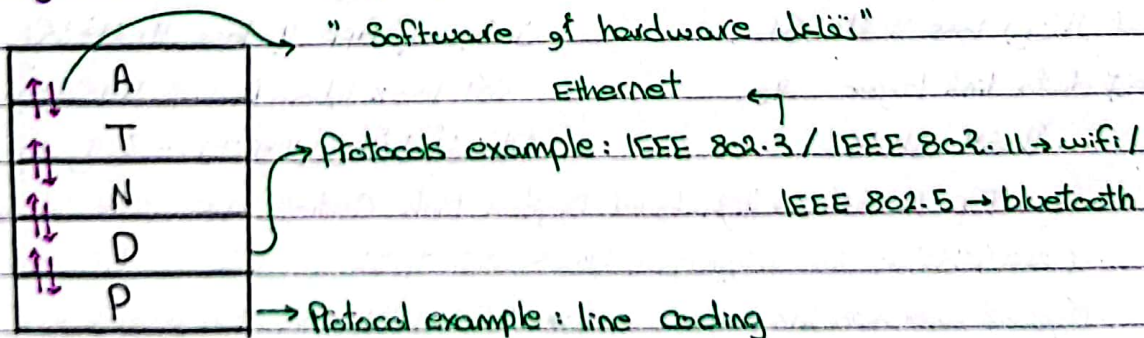 "تفاعل hardware أو Software"
A
Ethernet
T
Protocols example: IEEE 802.3 / IEEE 802.11 → wifi /
N
IEEE 802.5 → bluetooth
D
P
→ Protocol example: line coding